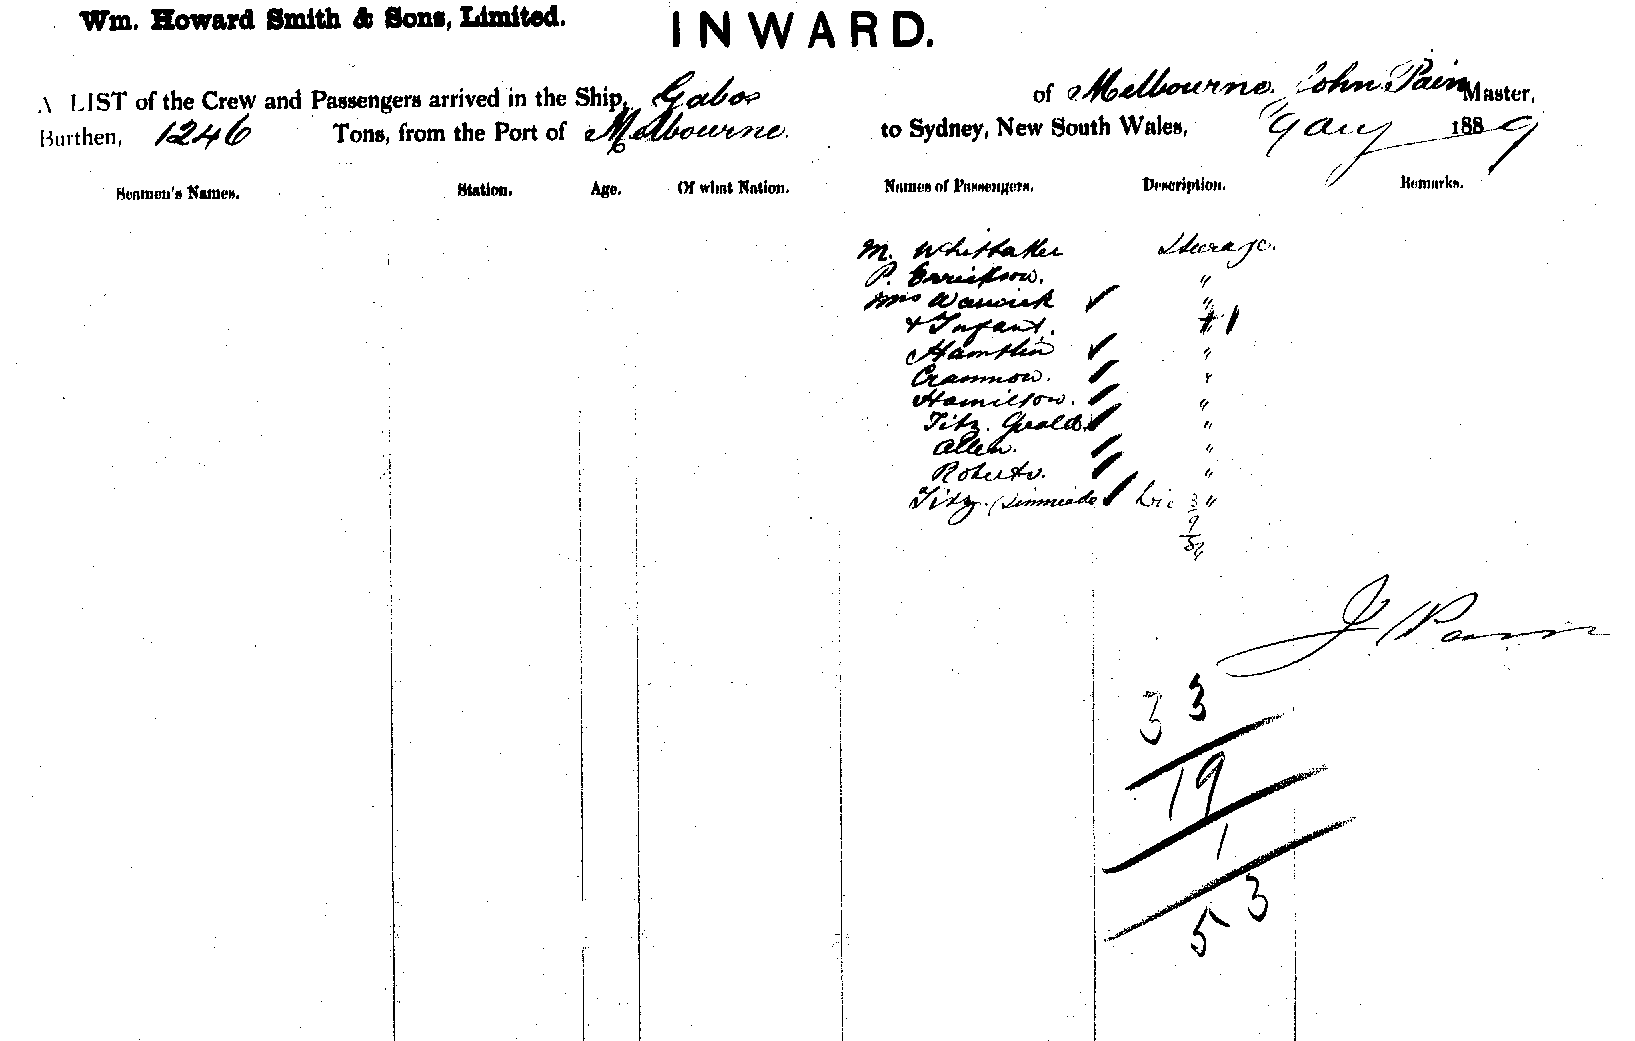 Wm. Howard Smith & Sons, Limited.
INWARD.
A LIST of the Crew and Passengers arrived in the Ship, Gabo of Melbourne, John Pain Master,
Burthen, 1246 Tons, from the Port of Melbourne. to Sydney, New South Wales, 1889
Seamen's Names. Station. Age. Of what Nation. Names of Passengers. Description. Remarks.
M. Whittaker Steerage.
P. Errickson. "
Mrs Warwick ✓ "
& Infant. 1
Hamblin ✓ "
Crammow. ✓ "
Hamilton. ✓ "
Fitz Gerald ✓ "
Allen. ✓ "
Roberts. ✓ "
Fitz ✓ "
J Pain
33
19
1
53